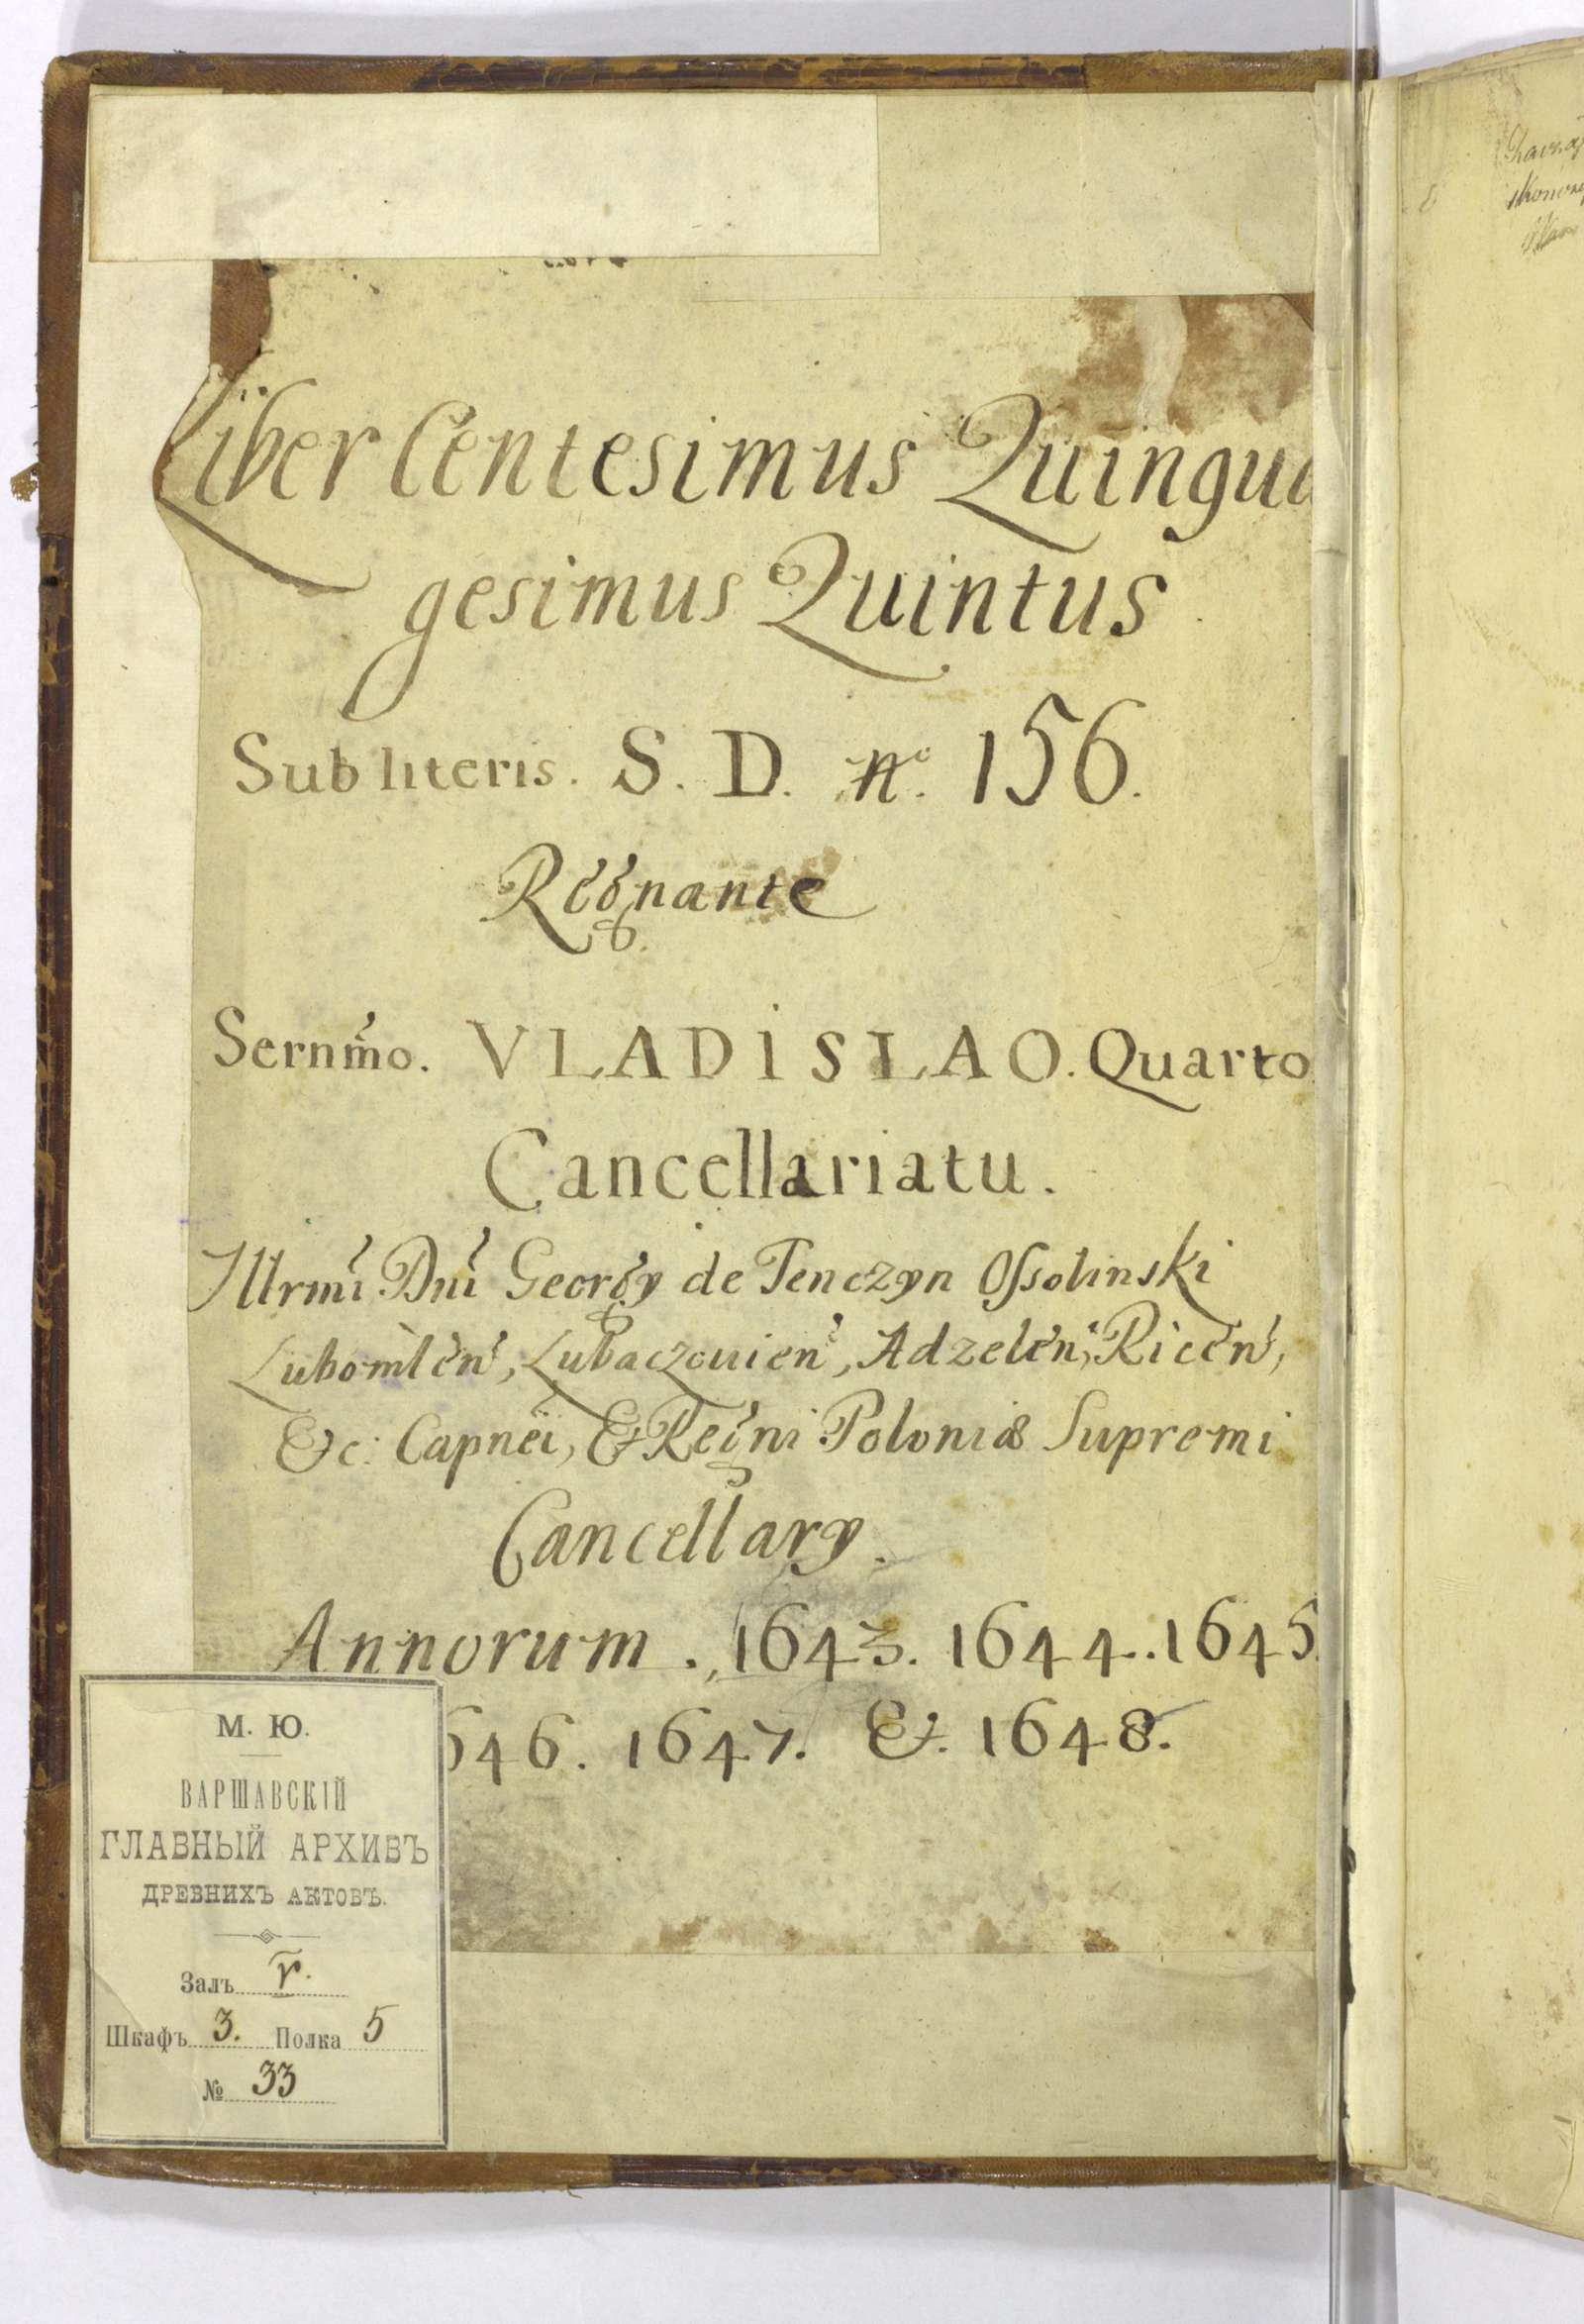 Liber Centesimus Quinqua
gesimus Quintus
Sub literis. S. D. nº. 156.
Regnante
Sernmo. VLADiSLAO. Quarto
Cancellariatu.
Illrmi Dni Georgy de Tenczyn Ossolinski
Lubomlen, Lubaczouien, Adzelen, Ricen,
&c: Capnei, & Regni Poloniæ Supremi
Cancellary.
Annorum. 1643. 1644. 1645.
646. 1647. &. 1648.
М. Ю.
ВАРШАВСКІЙ
ГЛАВНЫЙ АРХИВЪ
ДРЕВНИХЪ АКТОВЪ.
Залъ V.
Шкафъ 3. Полка 5
№ 33